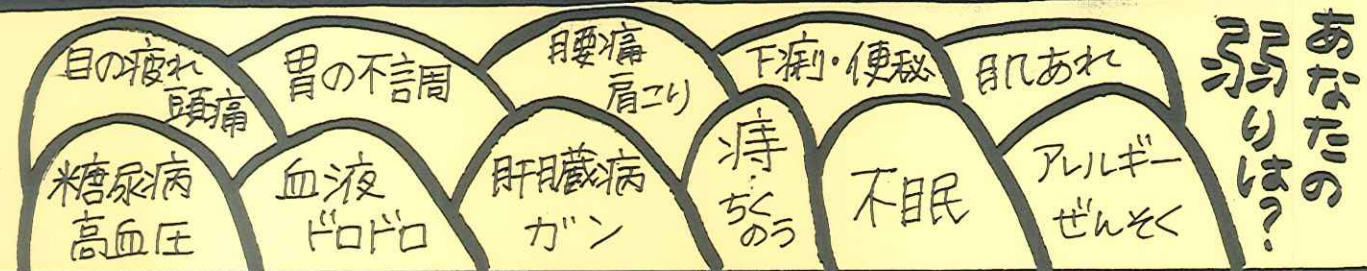 あなたの
弱りは?
目の疲れ
頭痛
胃の不調
腰痛
肩こり
下痢・便秘
肌あれ
糖尿病
高血圧
血液
ドロドロ
肝臓病
ガン
痔・
ちく
のう
不眠
アレルギー
ぜんそく